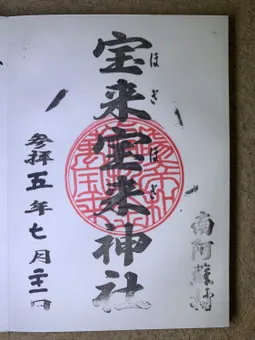 南阿蘇村
宝来宝来神社
ほぎ ほぎ
参拝 五年七月二十一日